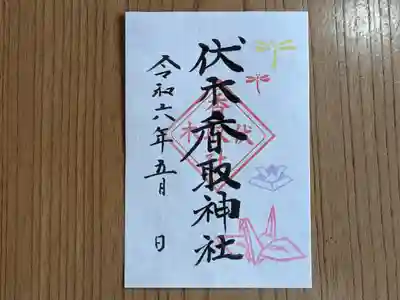 伏木香取神社
令和六年五月 日